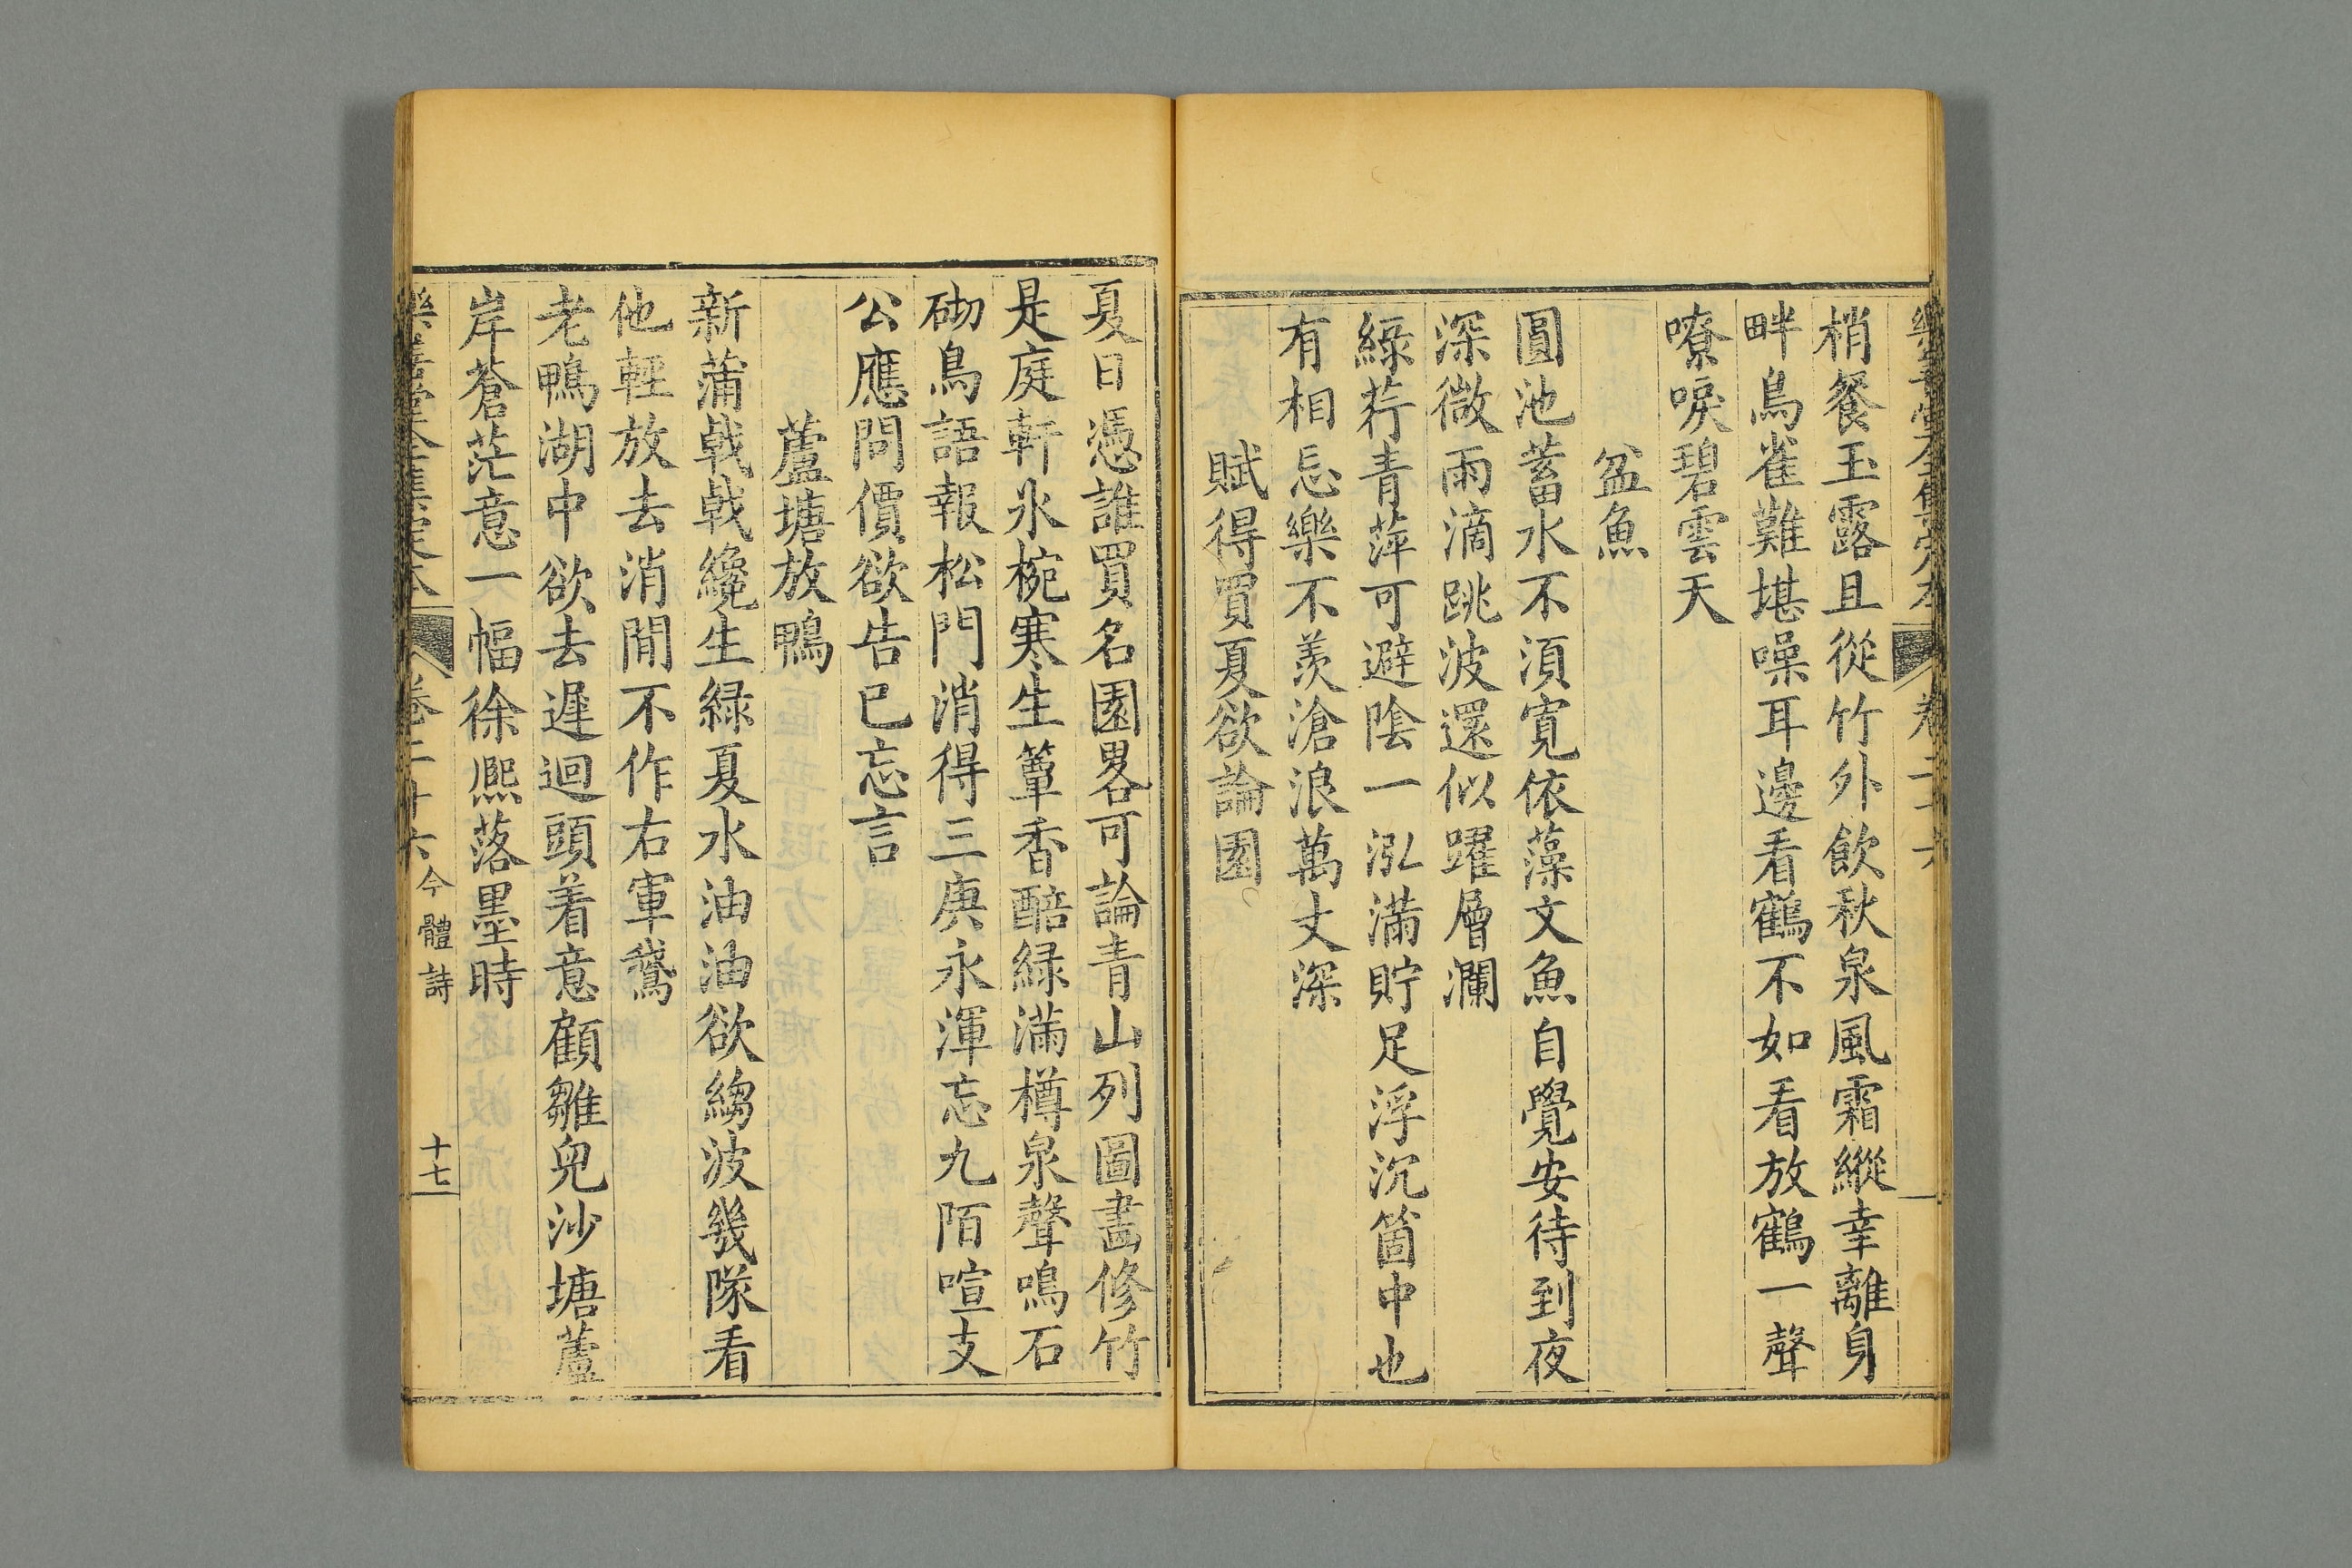 梢餐玉露且從竹外飲秋泉風霜縱幸離身
畔鳥雀難堪噪耳邊看鶴不如看放鶴一聲
嘹唳碧雲天
盆魚
圓池蓄水不湏寬依藻文魚自覺安待到夜
深微雨滴跳波還似躍層瀾
綠荇青萍可避陰一泓滿貯足浮沉箇中也
有相忘樂不羨滄浪萬丈深
賦得買夏欲論園
夏日憑誰買名園畧可論青山列圖畫修竹
是庭軒氷椀寒生簟香醅緑滿樽泉聲鳴石
砌鳥語報松門消得三庚永渾忘九陌喧支
公應問價欲告已忘言
蘆塘放鴨
新蒲戟戟纔生緑夏水油油欲縐波幾隊看
他輕放去消閒不作右軍鵞
老鴨湖中欲去遲迴頭着意顧雛兒沙塘蘆
岸蒼茫意一幅徐熈落墨時
樂善堂全集定本 卷二十六 今體詩 十七